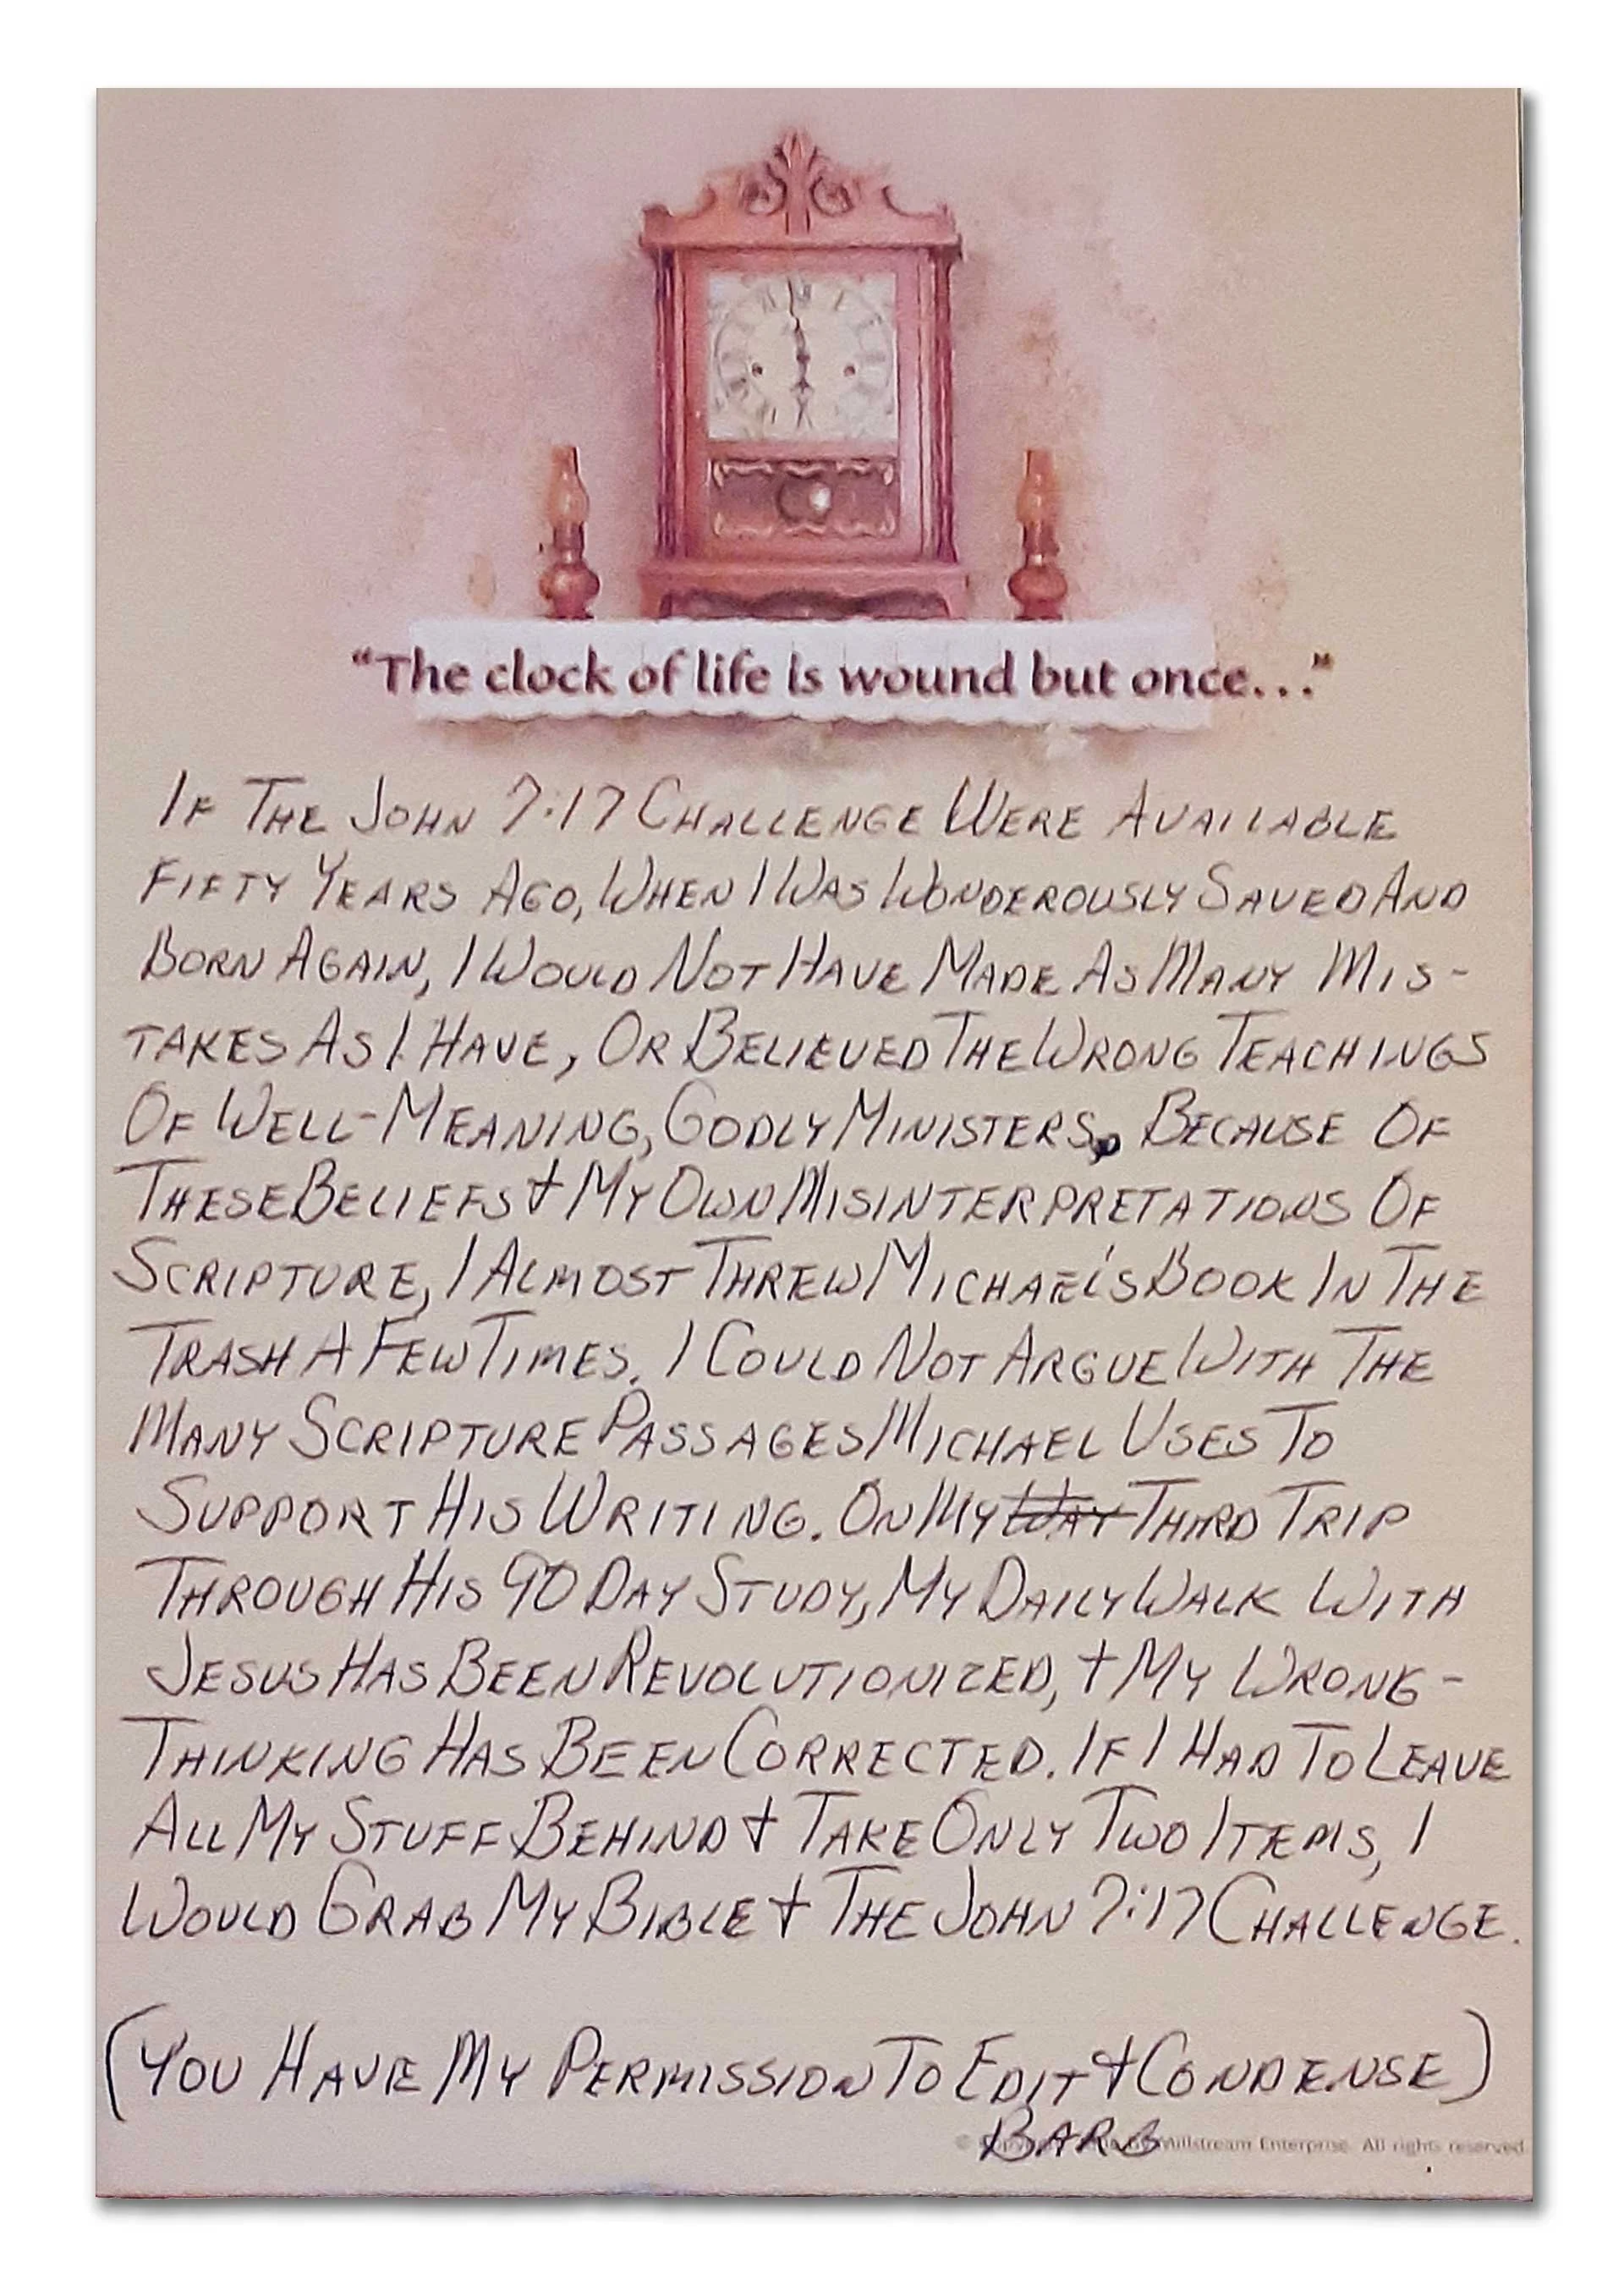 “The clock of life is wound but once...”
IF THE JOHN 7:17 CHALLENGE WERE AVAILABLE
FIFTY YEARS AGO, WHEN I WAS WONDEROUSLY SAVED AND
BORN AGAIN, I WOULD NOT HAVE MADE AS MANY MIS-
TAKES AS I HAVE, OR BELIEVED THE WRONG TEACHINGS
OF WELL-MEANING, GODLY MINISTERS, BECAUSE OF
THESE BELIEFS & MY OWN MISINTERPRETATIONS OF
SCRIPTURE, I ALMOST THREW MICHAEL'S BOOK IN THE
TRASH A FEW TIMES. I COULD NOT ARGUE WITH THE
MANY SCRIPTURE PASSAGES MICHAEL USES TO
SUPPORT HIS WRITING. ON MY WAY THIRD TRIP
THROUGH HIS 90 DAY STUDY, MY DAILY WALK WITH
JESUS HAS BEEN REVOLUTIONIZED, & MY WRONG-
THINKING HAS BEEN CORRECTED. IF I HAD TO LEAVE
ALL MY STUFF BEHIND & TAKE ONLY TWO ITEMS, I
WOULD GRAB MY BIBLE & THE JOHN 7:17 CHALLENGE.
(YOU HAVE MY PERMISSION TO EDIT & CONDENSE)
BARB
© Millstream Enterprise. All rights reserved.